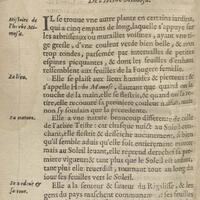 De l'Herbe Mimosa.
Histoire de
l'herbe Mi-
mosa.
IL se trouve vne autre plante en certains iardins,
qui a cinq empans de long, laquelle s'appuye
és arbrisseaux ou murailles voisines, ayant vne ti-
ge gresle, d'vne couleur verde bien belle,
trop ronde, parsemée par interualles de petites
espines picquantes, & dont les
ressemblent aux fueilles de la Fougere femelle.
Le lieu.
Elle se plaist aux lieux humides & pierreux: &
s'appelle Herbe Mimosa,
touche de la main, elle se flestrit,
son se soudain que la precedente.
Sa nature.
Elle a vne nature beaucoup differente de celle
de l'arbre Triste: car chaque nuict au Soleil cou-
chant, elle flestrit & desseiche aucunement,
qu'il semble aduis qu'elle soit, entierement morte
mais au Soleil leuant, elle reprend derechef sa pre-
miere vigueur: & tant plus que le Soleil est ardant,
tant plus elle reuerdit, tournant tout au long du
iour ses fueilles vers le Soleil.
Son odeur &
son goust.
Elle a la senteur & saueur du Riglisse, & les
gens du pays maschent communement